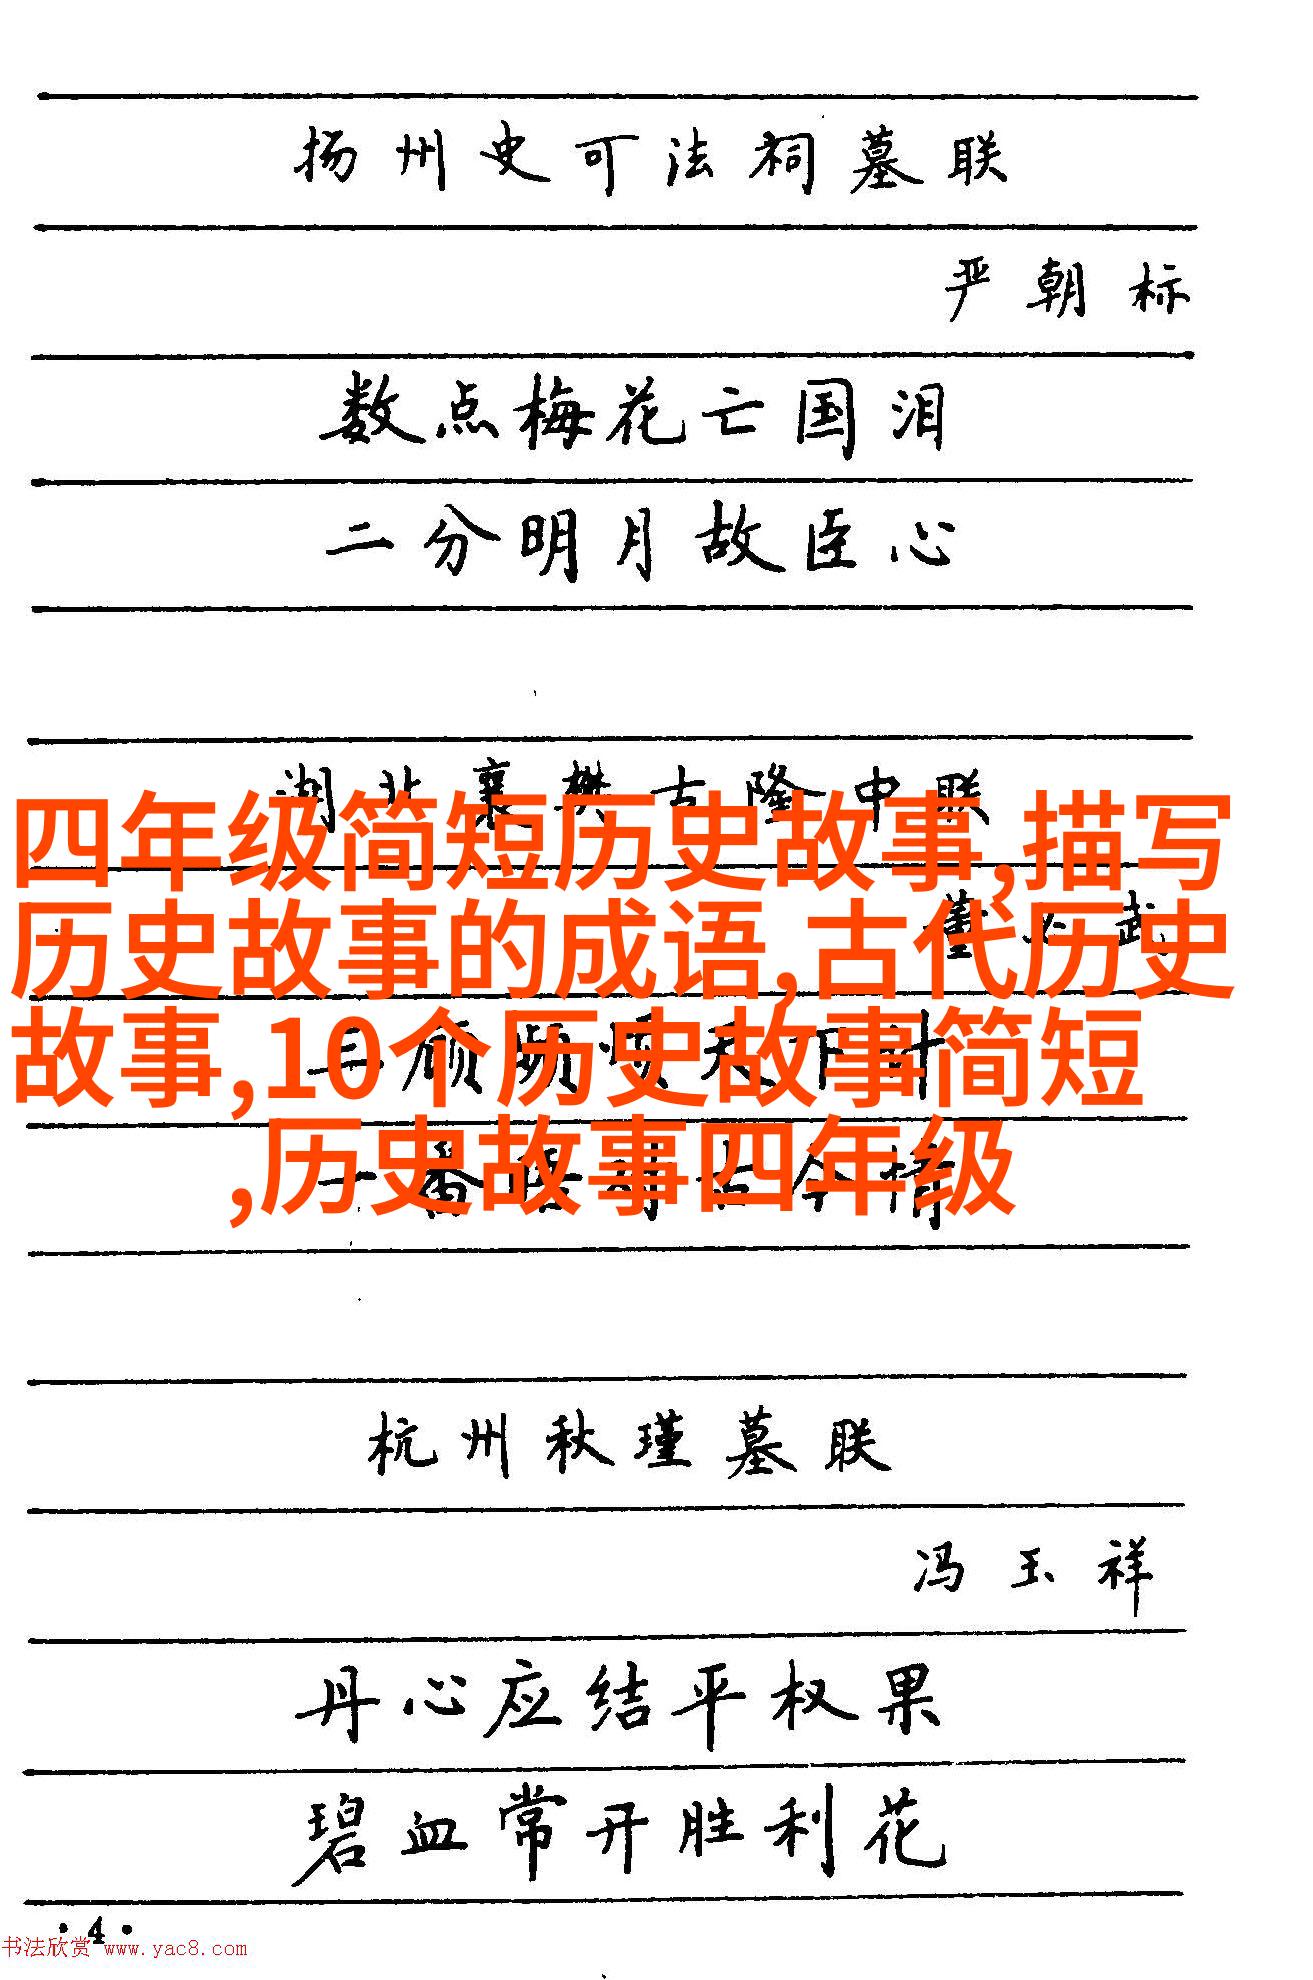 扬州史可法祠墓联
严朝标
数点梅花亡国泪
二分明月故臣心
湖北襄樊古隆中联
四年级简短历史故事,描写
董必武
历史故事的成语,古代历史
三顾频烦天下计
故事,10个历史故事简短
一番晤对古今情
,历史故事四年级
杭州秋瑾墓联
冯玉祥
丹心应结平权果
碧血常开胜利花
·4·
书法欣赏 www.yac8.com